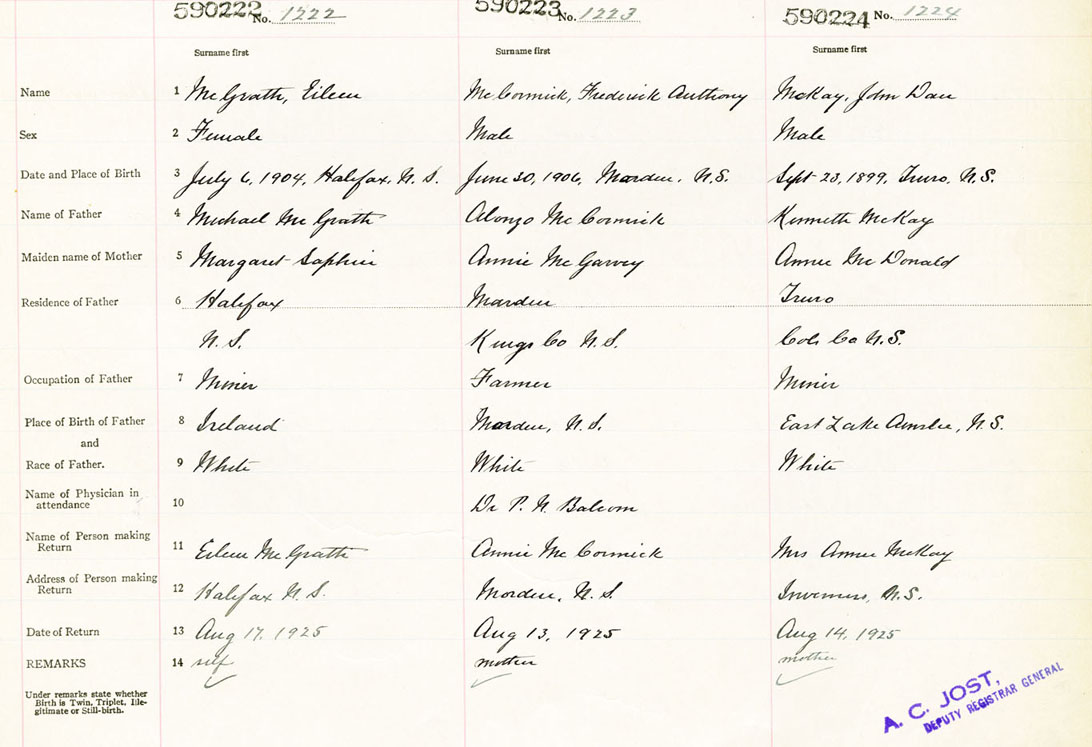 590222 No. 1222 590223 No. 1223 590224 No. 1224
Surname first Surname first Surname first
Name 1 McGrath, Eileen McCormick, Frederick Anthony McKay, John Dan
Sex 2 Female Male Male
Date and Place of Birth 3 July 6, 1904, Halifax, N.S. June 30, 1906, Morden, N.S. Sept. 23, 1899, Truro, N.S.
Name of Father 4 Michael McGrath Alonzo McCormick Kenneth McKay
Maiden name of Mother 5 Margaret Annie McGarvey Annie McDonald
Residence of Father 6 Halifax Morden Truro
N.S. Kings Co N.S. Col. Co N.S.
Occupation of Father 7 Miner Farmer Miner
Place of Birth of Father 8 Ireland Morden, N.S. East Lake Ainslie, N.S.
and
Race of Father. 9 White White White
Name of Physician in
attendance 10 Dr P. N. Balcom
Name of Person making
Return 11 Eileen McGrath Annie McCormick Mrs Annie McKay
Address of Person making
Return 12 Halifax N.S. Morden, N.S. Inverness, N.S.
Date of Return 13 Aug 17, 1925 Aug 13, 1925 Aug 14, 1925
REMARKS 14 self mother mother
Under remarks state whether
Birth is Twin, Triplet, Ille-
gitimate or Still-birth.
A. C. JOST,
DEPUTY REGISTRAR GENERAL